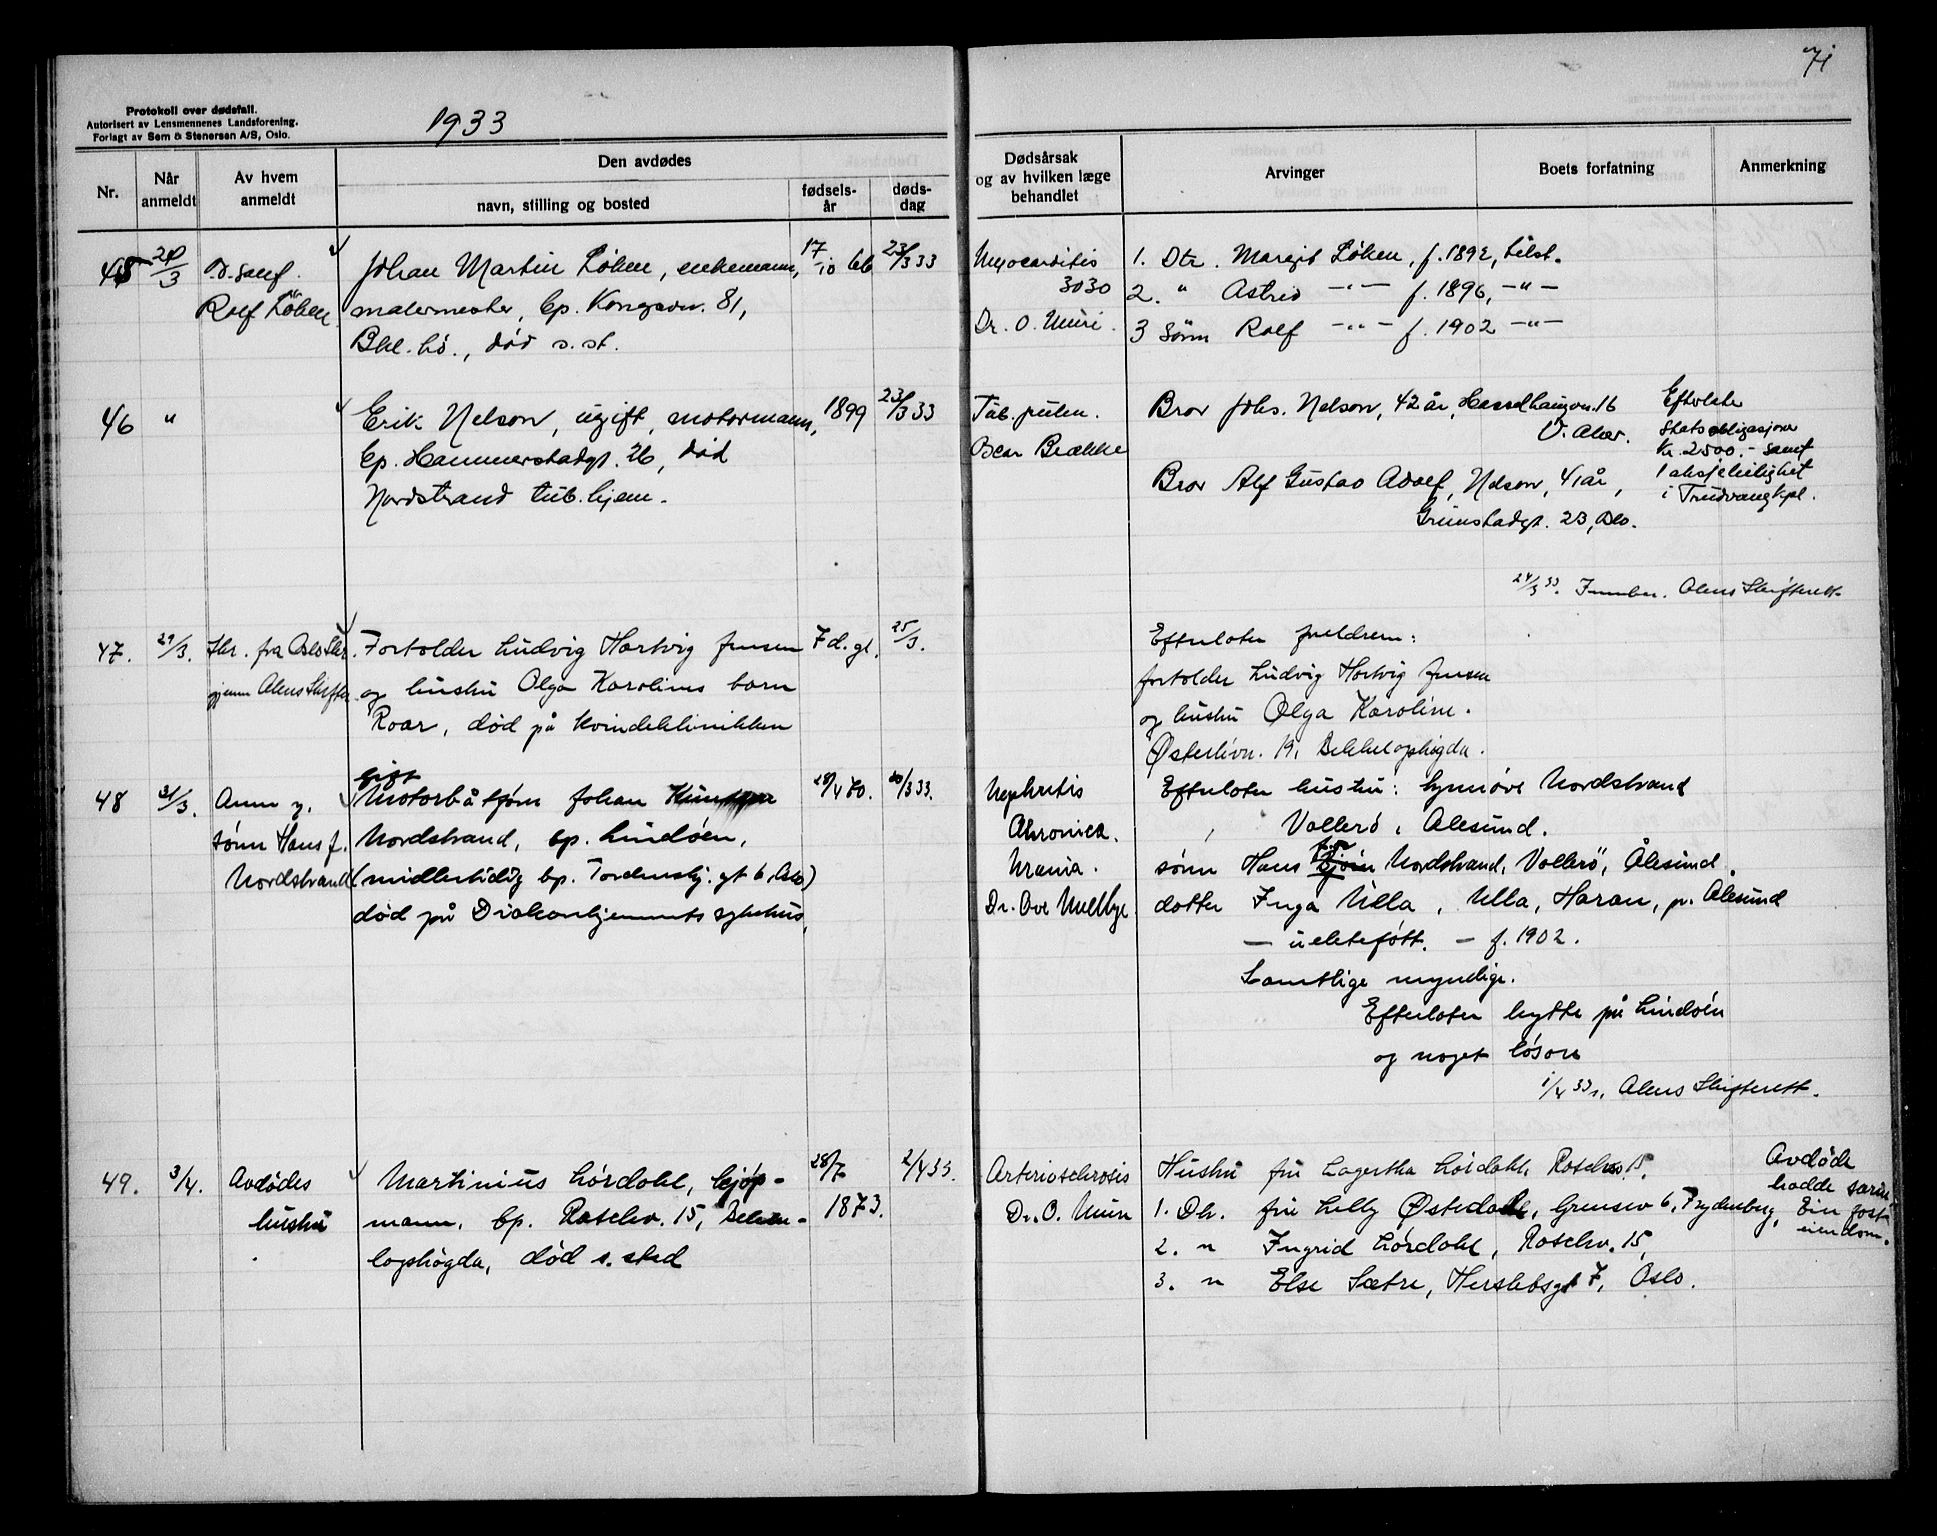 71
Protokoll over dødsfall.
Autorisert av Lensmennenes Landsforening.
Forlagt av Sem & Stenersen A/S, Oslo.
1933
Nr.
Når anmeldt
Av hvem anmeldt
Den avdødes
navn, stilling og bosted
fødsels-år
døds-dag
Dødsårsak og av hvilken læge behandlet
Arvinger
Boets forfatning
Anmerkning
45
Rolf Løken
Johan Martin Løken, enkemann,
malermester, bp. Kongsvn. 81,
Bkl.hö., död s. st.
17/10 66
23/3 33
Myocarditis
3030
Dr. O. Muri.
1. Dtr. Margit Løken, f. 1892, tilst.
2. " Astrid -"- f. 1896, -"-
3 Sönn Rolf -"- f. 1902 -"-
46 "
Erik Nelson, ugift, motormann,
bp. Hammerstadgt. 26, död
Nordstrand tub.hjem.
1899
23/3 33
Tub. pulm.
Oscar Brække
Bror Johs. Nelson, 42 år, Hasselhaugvn. 16
V. Aker.
Bror Alf Gustav Adolf, Nelson, 41 år,
Grimstadgt. 23, Oslo.
Efterlate
Statsobligasjoner
kr. 2500.- samt
1 aksjeleilighet
i Trudvang kpl.
24/3 33. Innber. Akers Skifterett.
47. 29/3.
Skr. fra Oslo Skr.
gjenn Akers Skifter.
Fortolder Ludvig Hartvig Jensen
og hustru Olga Karolines barn
Roar, død på Kvindeklinikken
7 d. gl.
25/3.
Efterlater foreldrene:
fortolder Ludvig Hartvig Jensen
og hustru Olga Karoline.
Østerlivn. 19, Bekkelagshøgda.
48 31/3.
Anm. y.
sönn Hans J.
Nordstrand
gift
Motorbåtfører Johan
Nordstrand, bp. Lindöen,
(midlertidig bp. Tordenskj. gt 6, Oslo)
død på Diakonhjemmets sykehus,
28/4 70.
30/3 33.
Nephritis
Chronica.
Uremia.
Dr. Ove Mellbye.
Efterlater hustru: Synnöve Nordstrand
Vallerö, Ålesund.
sönn Hans Nordstrand, Vallerö, Ålesund.
datter Inga Ulla, Ulla, Haram, pr. Ålesund
- uekteföđt. - f. 1902.
Samtlige myndige.
Efterlater hytte på Lindöen
og noget lösöre
1/4 33, Akers Skifterett.
49. 3/4.
Avdödes
hustru
Martinius Lördahl, kjøp-
mann, bp. Raschsv. 15, Bekke-
lagshögda, död s. sted
28/7
1873.
2/4 33.
Arteriosclerosis
Dr. O. Muri
Hustru fru Lagertha Lördahl, Raschsv 15.
1. Dtr. fru Lilly Østedahl, Grensev 6, Frydenberg,
2. " Ingrid Lördahl, Raschv. 15,
3. " Else Sætre, Herslebsgt 7, Oslo.
Avdöde
hadde særie
Ein fast
eiendom.